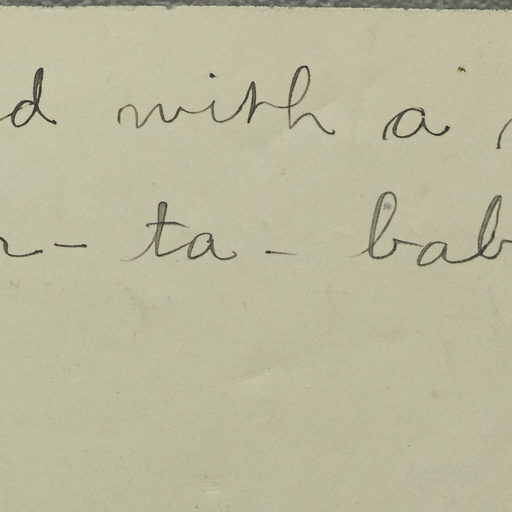 d with a
- ta - bab